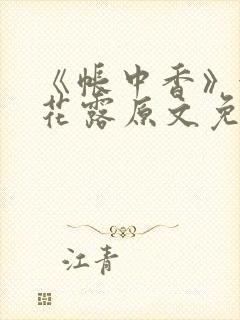 《帐中香》
花露原文免
江青